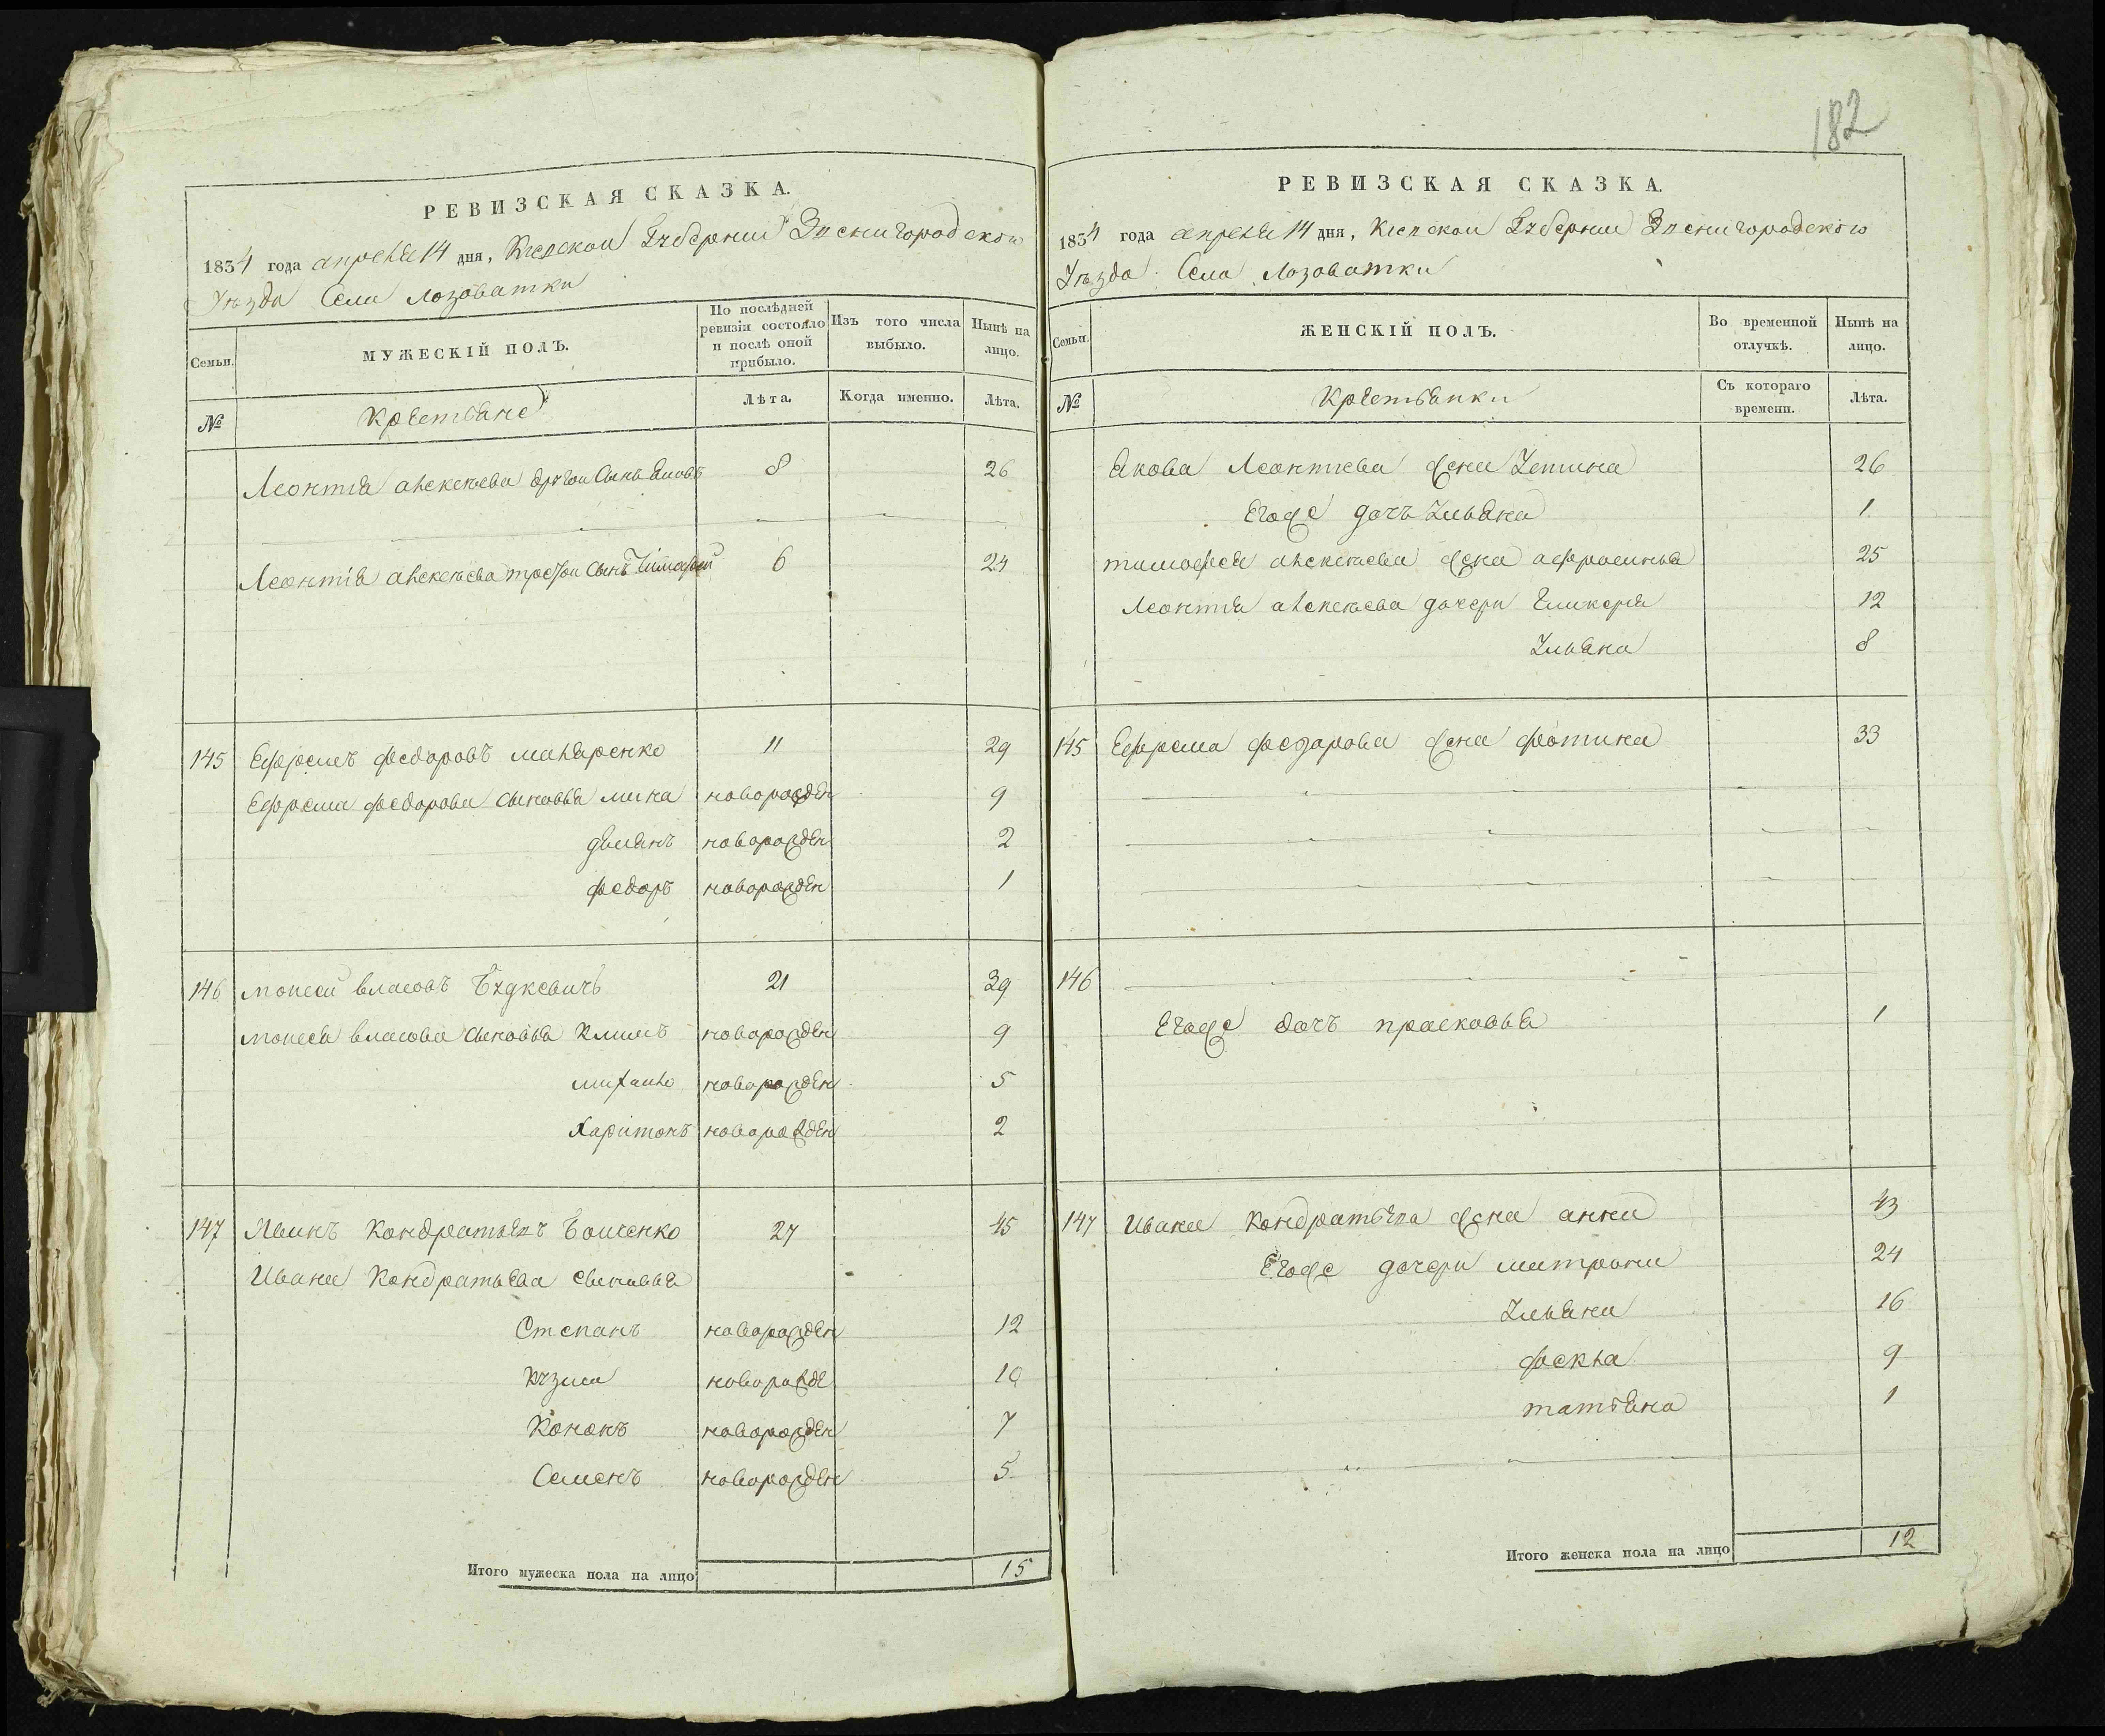 РЕВИЗСКАЯ СКАЗКА.
1834 года апреля 14 дня, Киевской Губернии Звенигородского
Уѣзда Села Лозоватки
Семьи.
МУЖЕСКІЙ ПОЛЪ.
По послѣдней ревизіи состояло и послѣ оной прибыло.
Изъ того числа выбыло.
Нынѣ на лицо.
№
Крестьяне
Лѣта.
Когда именно.
Лѣта.
Леонтія алексѣева другой Сынъ Яковъ 8 26
Леонтія алексѣева третой Сынъ Тимофей 6 24
145 Ефремъ федоровъ макаренко 11 29
Ефрема федорова сыновья мина новорожден 9
демянъ новорожден 2
федоръ новорожден 1
146 моисей власовъ Будкевичъ 21 39
моисея власова сыновья Климъ новорожден 9
михаило новорожден 5
Харитонъ новорожден 2
147 Иванъ Кондратьевъ 27 45
Ивана Кондратьева сыновья
Степанъ новорожден 12
Кузма новорожде 10
Кононъ новорожден 7
Семенъ новорожден 5
Итого мужеска пола на лицо 15
182
РЕВИЗСКАЯ СКАЗКА.
1834 года апреля 14 дня, Киевской Губернии Звенигородского
Уѣзда Села Лозоватки
Семьи.
ЖЕНСКІЙ ПОЛЪ.
Во временной отлучкѣ.
Нынѣ на лицо.
№
Крестьянки
Съ котораго времени.
Лѣта.
Якова Леонтиева жена Устина 26
Егоже дочъ Ульяна 1
тимофея алексѣева жена афросинья 25
Леонтия алексѣева дочери Гликерия 12
Ульяна 8
145 Ефрема федорова жена фотина 33
146
Егоже дочъ прасковья 1
147 Ивана Кондратьева жена анна 43
Егоже дочери матрона 24
Ульяна 16
фекла 9
татьяна 1
Итого женска пола на лицо 12